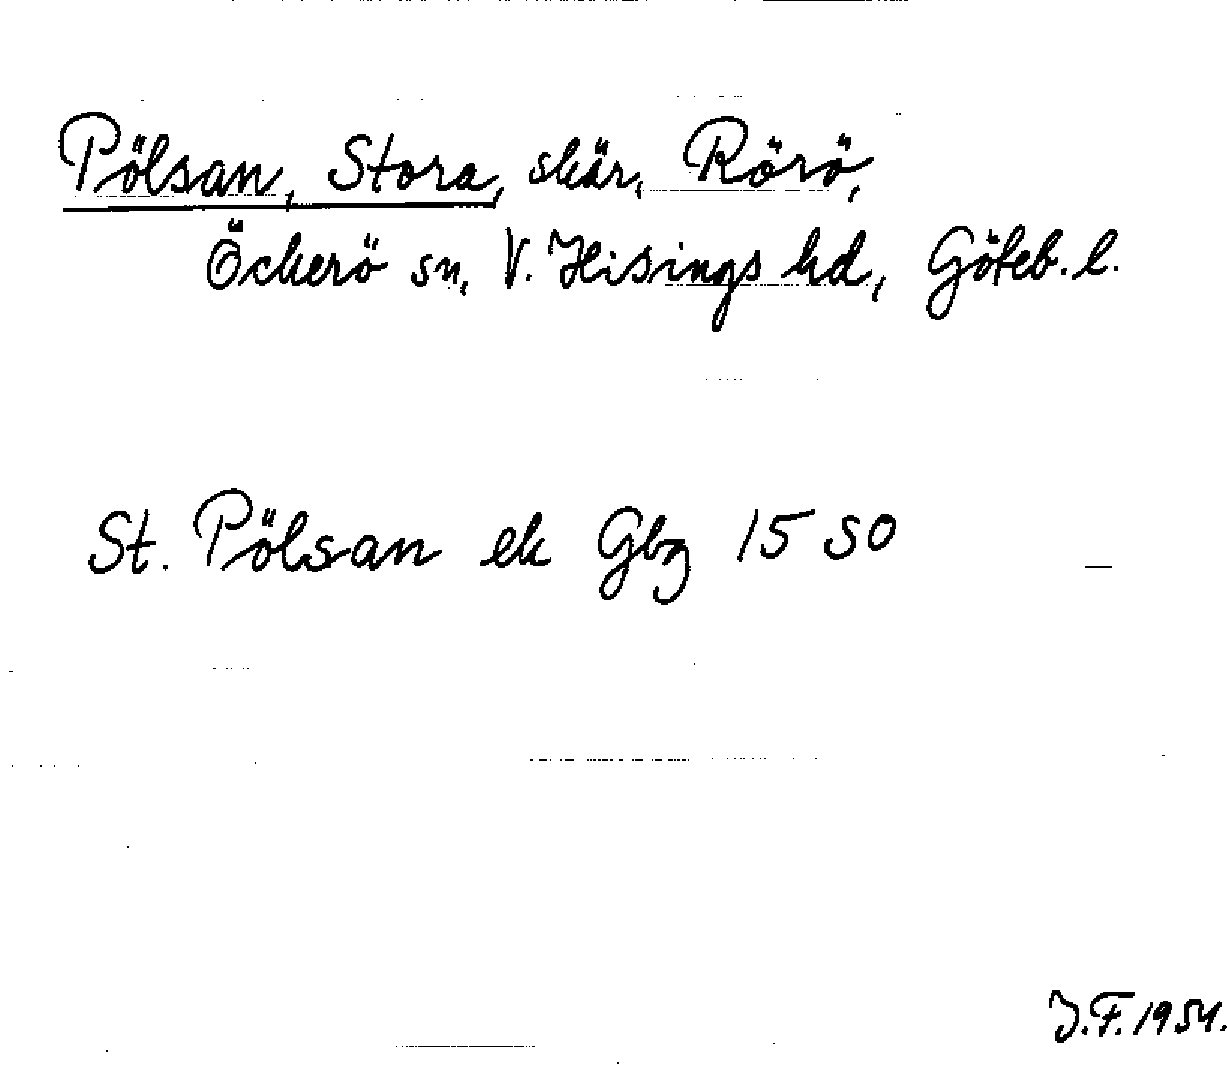 Pölsan, Stora, skär, Rörö,
Öckerö sn, V. Hisings hd, Göteb. l.
St. Pölsan ek Gbg 15 SO
J.F. 1954.